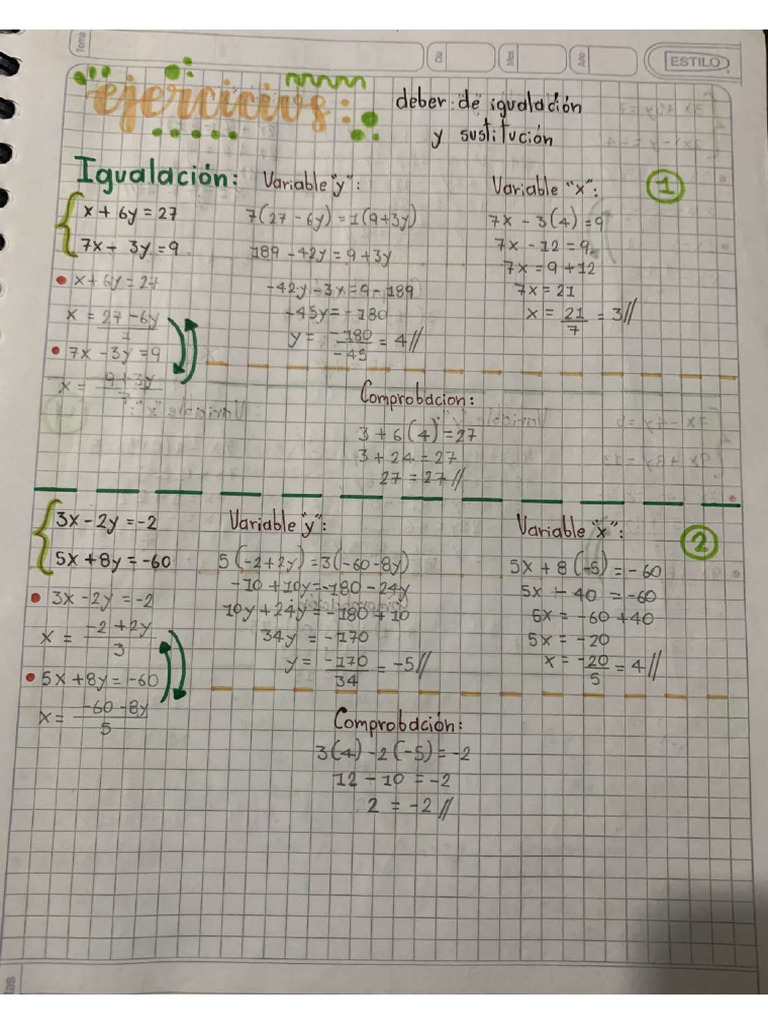 Tema
Día
Mes
Año
ESTILO
ejercicios:
deber: de igualación
y sustitución
Igualación:
x + 6y = 27
7x - 3y = 9
• x + 6y = 27
x = 27 - 6y
7
• 7x - 3y = 9
x = 9 + 3y
7
Variable "y":
7(27 - 6y) = 1(9 + 3y)
189 - 42y = 9 + 3y
-42y - 3y = 9 - 189
-45y = -180
y = -180 = 4//
-45
Variable "x":
1
7x - 3(4) = 9
7x - 12 = 9
7x = 9 + 12
7x = 21
x = 21 = 3//
7
Comprobacion:
3 + 6(4) = 27
3 + 24 = 27
27 = 27//
3x - 2y = -2
5x + 8y = -60
• 3x - 2y = -2
x = -2 + 2y
3
• 5x + 8y = -60
x = -60 - 8y
5
Variable "y":
5(-2 + 2y) = 3(-60 - 8y)
-10 + 10y = -180 - 24y
10y + 24y = -180 + 10
34y = -170
y = -170 = -5//
34
Variable "x":
2
5x + 8(-5) = -60
5x - 40 = -60
5x = -60 + 40
5x = -20
x = -20 = 4//
5
Comprobación:
3(4) - 2(-5) = -2
12 - 10 = -2
2 = -2//